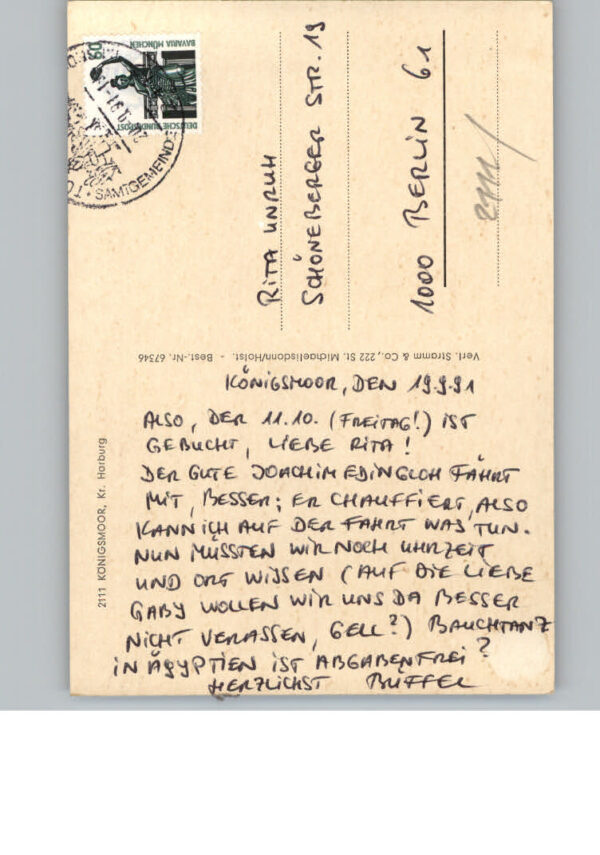 KÖNIGSMOOR, DEN 19.9.91
ALSO, DER 11.10. (FREITAG!) IST
GEBUCHT, LIEBE RITA!
DER GUTE JOACHIM EDINGLOH FÄHRT
MIT, BESSER: ER CHAUFFIERT, ALSO
KANN ICH AUF DER FAHRT WAS TUN.
NUN MÜSSTEN WIR NOCH UHRZEIT
UND ORT WISSEN (AUF DIE LIEBE
GABY WOLLEN WIR UNS DA BESSER
NICHT VERLASSEN, GELL?) BAUCHTANZ
IN ÄGYPTIEN IST ABGABENFREI?
HERZLICHST BÜFFEL
2111 KÖNIGSMOOR, Kr. Harburg
Verl. Stramm & Co., 222 St. Michaelisdonn/Holst. - Best.-Nr. 67346
RITA UNRUH
SCHÖNEBERGER STR. 19
1000 BERLIN 61
60
BAVARIA MÜNCHEN
DEUTSCHE BUNDESPOST
SAMTGEMEINDE